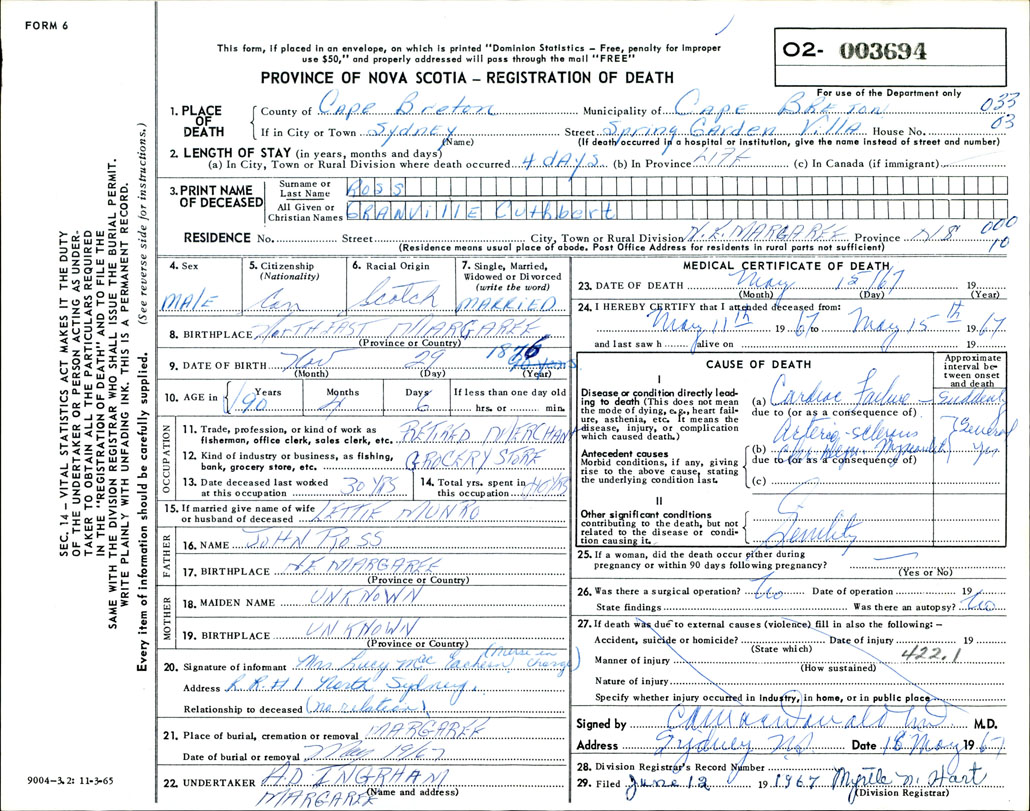 FORM 6
This form, if placed in an envelope, on which is printed "Dominion Statistics – Free, penalty for improper
use $50," and properly addressed will pass through the mail "FREE"
PROVINCE OF NOVA SCOTIA – REGISTRATION OF DEATH
02- 003694
For use of the Department only
033
03
1. PLACE OF DEATH
County of Cape Breton Municipality of CAPE BRETON
If in City or Town Sydney Street Spring Garden Villa House No.
(Name) (If death occurred in a hospital or institution, give the name instead of street and number)
2. LENGTH OF STAY (in years, months and days)
(a) In City, Town or Rural Division where death occurred 4 days (b) In Province LIFE (c) In Canada (if immigrant)
3. PRINT NAME OF DECEASED
Surname or Last Name ROSS
All Given or Christian Names GRANVILLE Cuthbert
RESIDENCE No. Street City, Town or Rural Division N.E. MARGAREE Province NS
000
10
(Residence means usual place of abode. Post Office Address for residents in rural parts not sufficient)
SEC. 14 – VITAL STATISTICS ACT MAKES IT THE DUTY
OF THE UNDERTAKER OR PERSON ACTING AS UNDER-
TAKER TO OBTAIN ALL THE PARTICULARS REQUIRED
IN THE "REGISTRATION OF DEATH" AND TO FILE THE
SAME WITH THE DIVISION REGISTRAR WHO SHALL ISSUE THE BURIAL PERMIT.
WRITE PLAINLY WITH UNFADING INK. THIS IS A PERMANENT RECORD.
Every item of information should be carefully supplied. (See reverse side for instructions.)
4. Sex
MALE
5. Citizenship
(Nationality)
Can
6. Racial Origin
Scotch
7. Single, Married,
Widowed or Divorced
(write the word)
MARRIED
8. BIRTHPLACE NORTHEAST MARGAREE
(Province or Country)
9. DATE OF BIRTH Nov 29 1876
(Month) (Day) (Year)
10. AGE in Years Months Days If less than one day old
90 6 hrs. or min.
OCCUPATION
11. Trade, profession, or kind of work as RETIRED MERCHANT
fisherman, office clerk, sales clerk, etc.
12. Kind of industry or business, as fishing, GROCERY STORE
bank, grocery store, etc.
13. Date deceased last worked
at this occupation 30 YRS
14. Total yrs. spent in
this occupation 40 YRS
15. If married give name of wife
or husband of deceased LETTIE MUNRO
FATHER
16. NAME JOHN ROSS
17. BIRTHPLACE N.E. MARGAREE
(Province or Country)
MOTHER
18. MAIDEN NAME UNKNOWN
19. BIRTHPLACE UNKNOWN
(Province or Country)
20. Signature of informant Mrs Lucy Mac Eachern (Nurse in charge)
Address R.R.#1 North Sydney.
Relationship to deceased (no relation)
21. Place of burial, cremation or removal MARGAREE
Date of burial or removal May 19/67
22. UNDERTAKER H.D. INGRHAM
(Name and address)
MARGAREE
9004-3.2: 11-3-65
MEDICAL CERTIFICATE OF DEATH
23. DATE OF DEATH May 15/67 19
(Month) (Day) (Year)
24. I HEREBY CERTIFY that I attended deceased from:
May 11th 1967 to May 15th 1967
and last saw h alive on 19
CAUSE OF DEATH
Approximate
interval be-
tween onset
and death
I
Disease or condition directly lead-
ing to death (This does not mean
the mode of dying, e.g., heart fail-
ure, asthenia, etc. It means the
disease, injury, or complication
which caused death.)
(a) Cardiac Failure – Suddenly
due to (or as a consequence of)
Arterio-sclerosis Several
Antecedent causes
Morbid conditions, if any, giving
rise to the above cause, stating
the underlying condition last.
(b) yrs
due to (or as a consequence of)
(c)
II
Other significant conditions
contributing to the death, but not
related to the disease or condi-
tion causing it.
Senility
25. If a woman, did the death occur either during
pregnancy or within 90 days following pregnancy?
(Yes or No)
26. Was there a surgical operation? No Date of operation 19
State findings Was there an autopsy? No
27. If death was due to external causes (violence) fill in also the following: –
Accident, suicide or homicide? Date of injury 19
(State which)
422.1
Manner of injury
(How sustained)
Nature of injury
Specify whether injury occurred in industry, in home, or in public place
Signed by M.D.
Address Sydney NS Date 18 May 1967
28. Division Registrar's Record Number
29. Filed June 12 19 1967 Myrtle N. Hart
(Division Registrar)